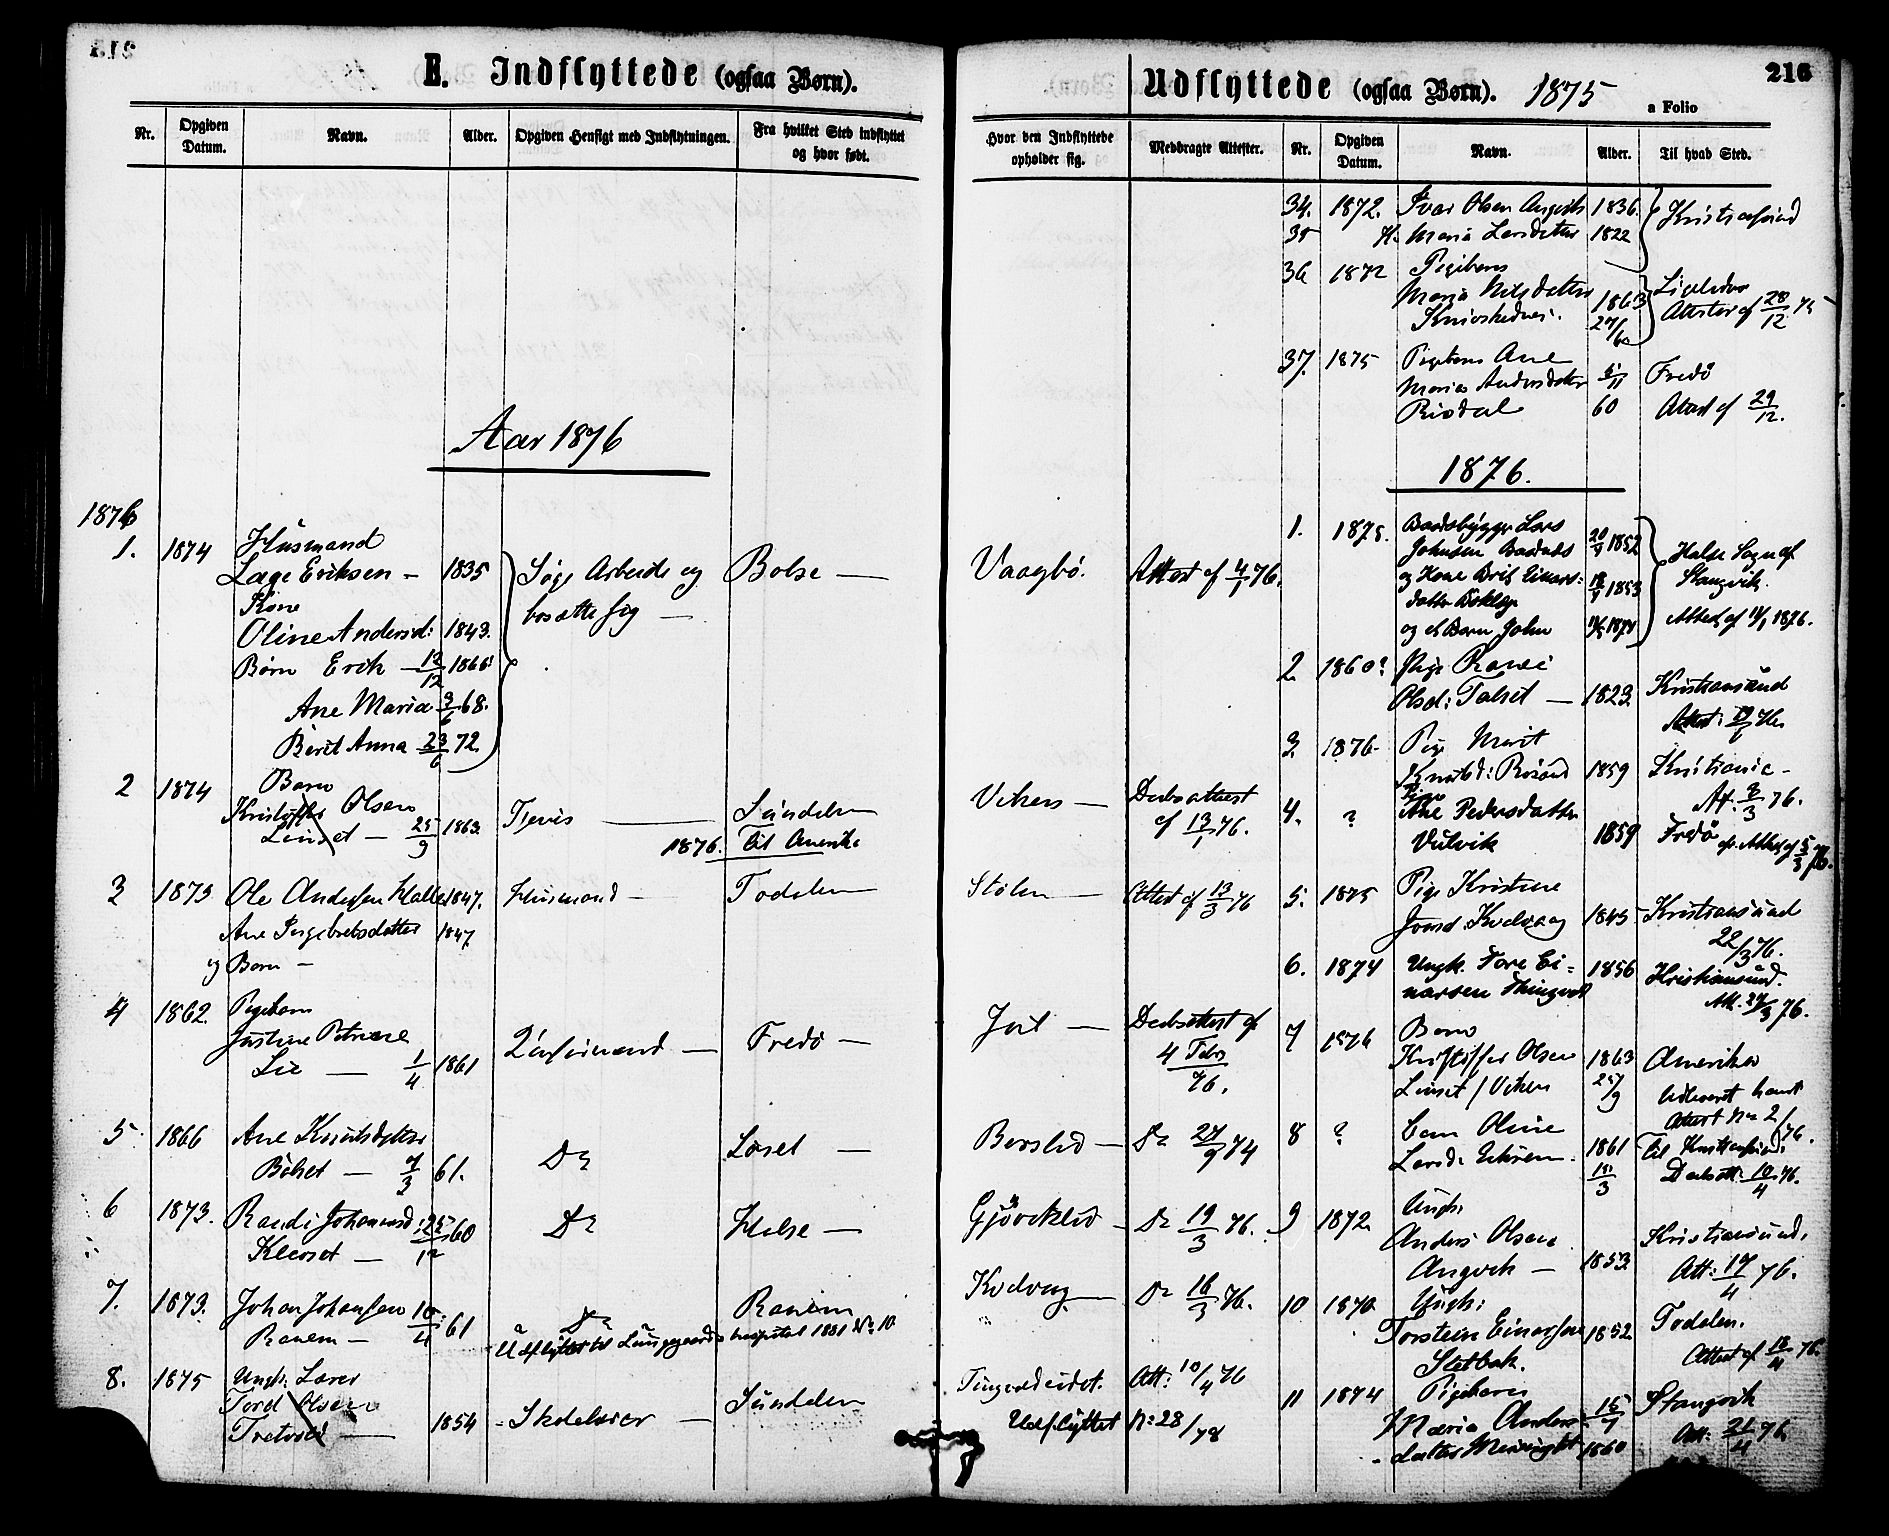 E. Indflyttede (ogsaa Børn).
Nr.
Opgiven Datum.
Navn.
Alder.
Opgiven Hensigt med Indflytningen.
Fra hvilket Sted indflyttet og hvor født.
Aar 1876
1876
1. 1874 Husmand
Lage Eriksen - 1835 Søge Arbeide og Bolse
Kone bosætte sig
Oline Andersd: 1843.
Børn Erik 12/12 1866
Ane Maria 3/6 68.
Berit Anna 23/6 72
2 1874 Barn
Kristoffer Olsen Sundalen
Linset 25/9 1863 Tjeneste
1876. til Amerika
3 1873 Ole Andersen Halle 1847. Husmand Todalen
Ane Ingebretsdatter 1847
og Barn
4 1862 Pigebarn
Justine Petrine Fredø
Lie 1/4 1861
5 1866 Ane Knutsdatter
Bølset 7/3 61. Do Loset
6 1873. Randi Johannesd: 25/12 60 Do Halse
Klevset
7. 1873. Johan Johansen 10/4 61 Do Ranem
Ranem Udflyttet til Lungegaards hospital 1881 No 10
8. 1875 Ungk. Lærer
Tord Olsen Sundalen
Tretvold 1854 Skolelærer
Udflyttede (ogsaa Børn). 1875
216
a Folio
Hvor den Indflyttede opholder sig.
Medbragte Attester.
Nr.
Opgiven Datum.
Navn.
Alder.
Til hvad Sted.
34. 1872. Ivar Olsen Angvik 1836. Kristiansund
35 H. Maria Larsdatter 1822
36 1872 Pigebarn
Maria Nilsdatter 1863 Ligeledes
Attester af 28/12 75
37. 1875 Pigebarn Ane
Maria Andersdatter 5/11 Fredø
Risdal 60 Attest af 29/12.
1876.
1. 1875. Baadsbygger Lars 20/9 1852
Johnsen Halse Sogn af
og Kone Brit Einars: 1853 Stangvik.
datter
og et Barn John Attest af 1876.
Vaagbø. Attest af 4/1 76.
2 1860? Pige
Olsd: Talset 1823 Kristiansund
3 1876 Pige Marit
Knutsd: 1859 Kristiania
At. 8/3 76.
Viken Daabsattest
af 13/1 76.
4. ? Pige
Ane Pedersdatter
Vulvik 1859 Fredø Attest af 5/3 76.
Stølen Attest af 13/3 76
5. 1875 Pige Kristine
Jonsd. Kvalvaag 1845 Kristiansund
22/3 76.
6. 1874 Ungk. Tore Ei- 1856 Kristiansund.
narsen Thingvol Att. 27/3 76.
Daabsattest af
4 Febr
76.
7 1876 Barn
Kristoffer Olsen 1863 Amerika
Linset / Viken 25/9
Attest No 2/76.
Do 27/9 74
8 ? Oline
Larsd. 1861 til Kristiansund
15/3 Daabsatt: 10/4 76.
Do 19/3 76. 9 1872 Ungk.
Anders Olsen Kristiansund.
Angvik 1853 Att: 17/4 76.
Kvalvaag Do 16/3 76. 10 1870 Ungk:
Torstein Einarsen 1852 Todalen.
Sletbak. Attest af 18/4 76.
Tingvoldeidet. Att: 10/4 76 11 1874 Pigebarn
Maria Anders- 15/7 Stangvik
datter 1860 Att: 21/4 76
Udflyttet No 28/78